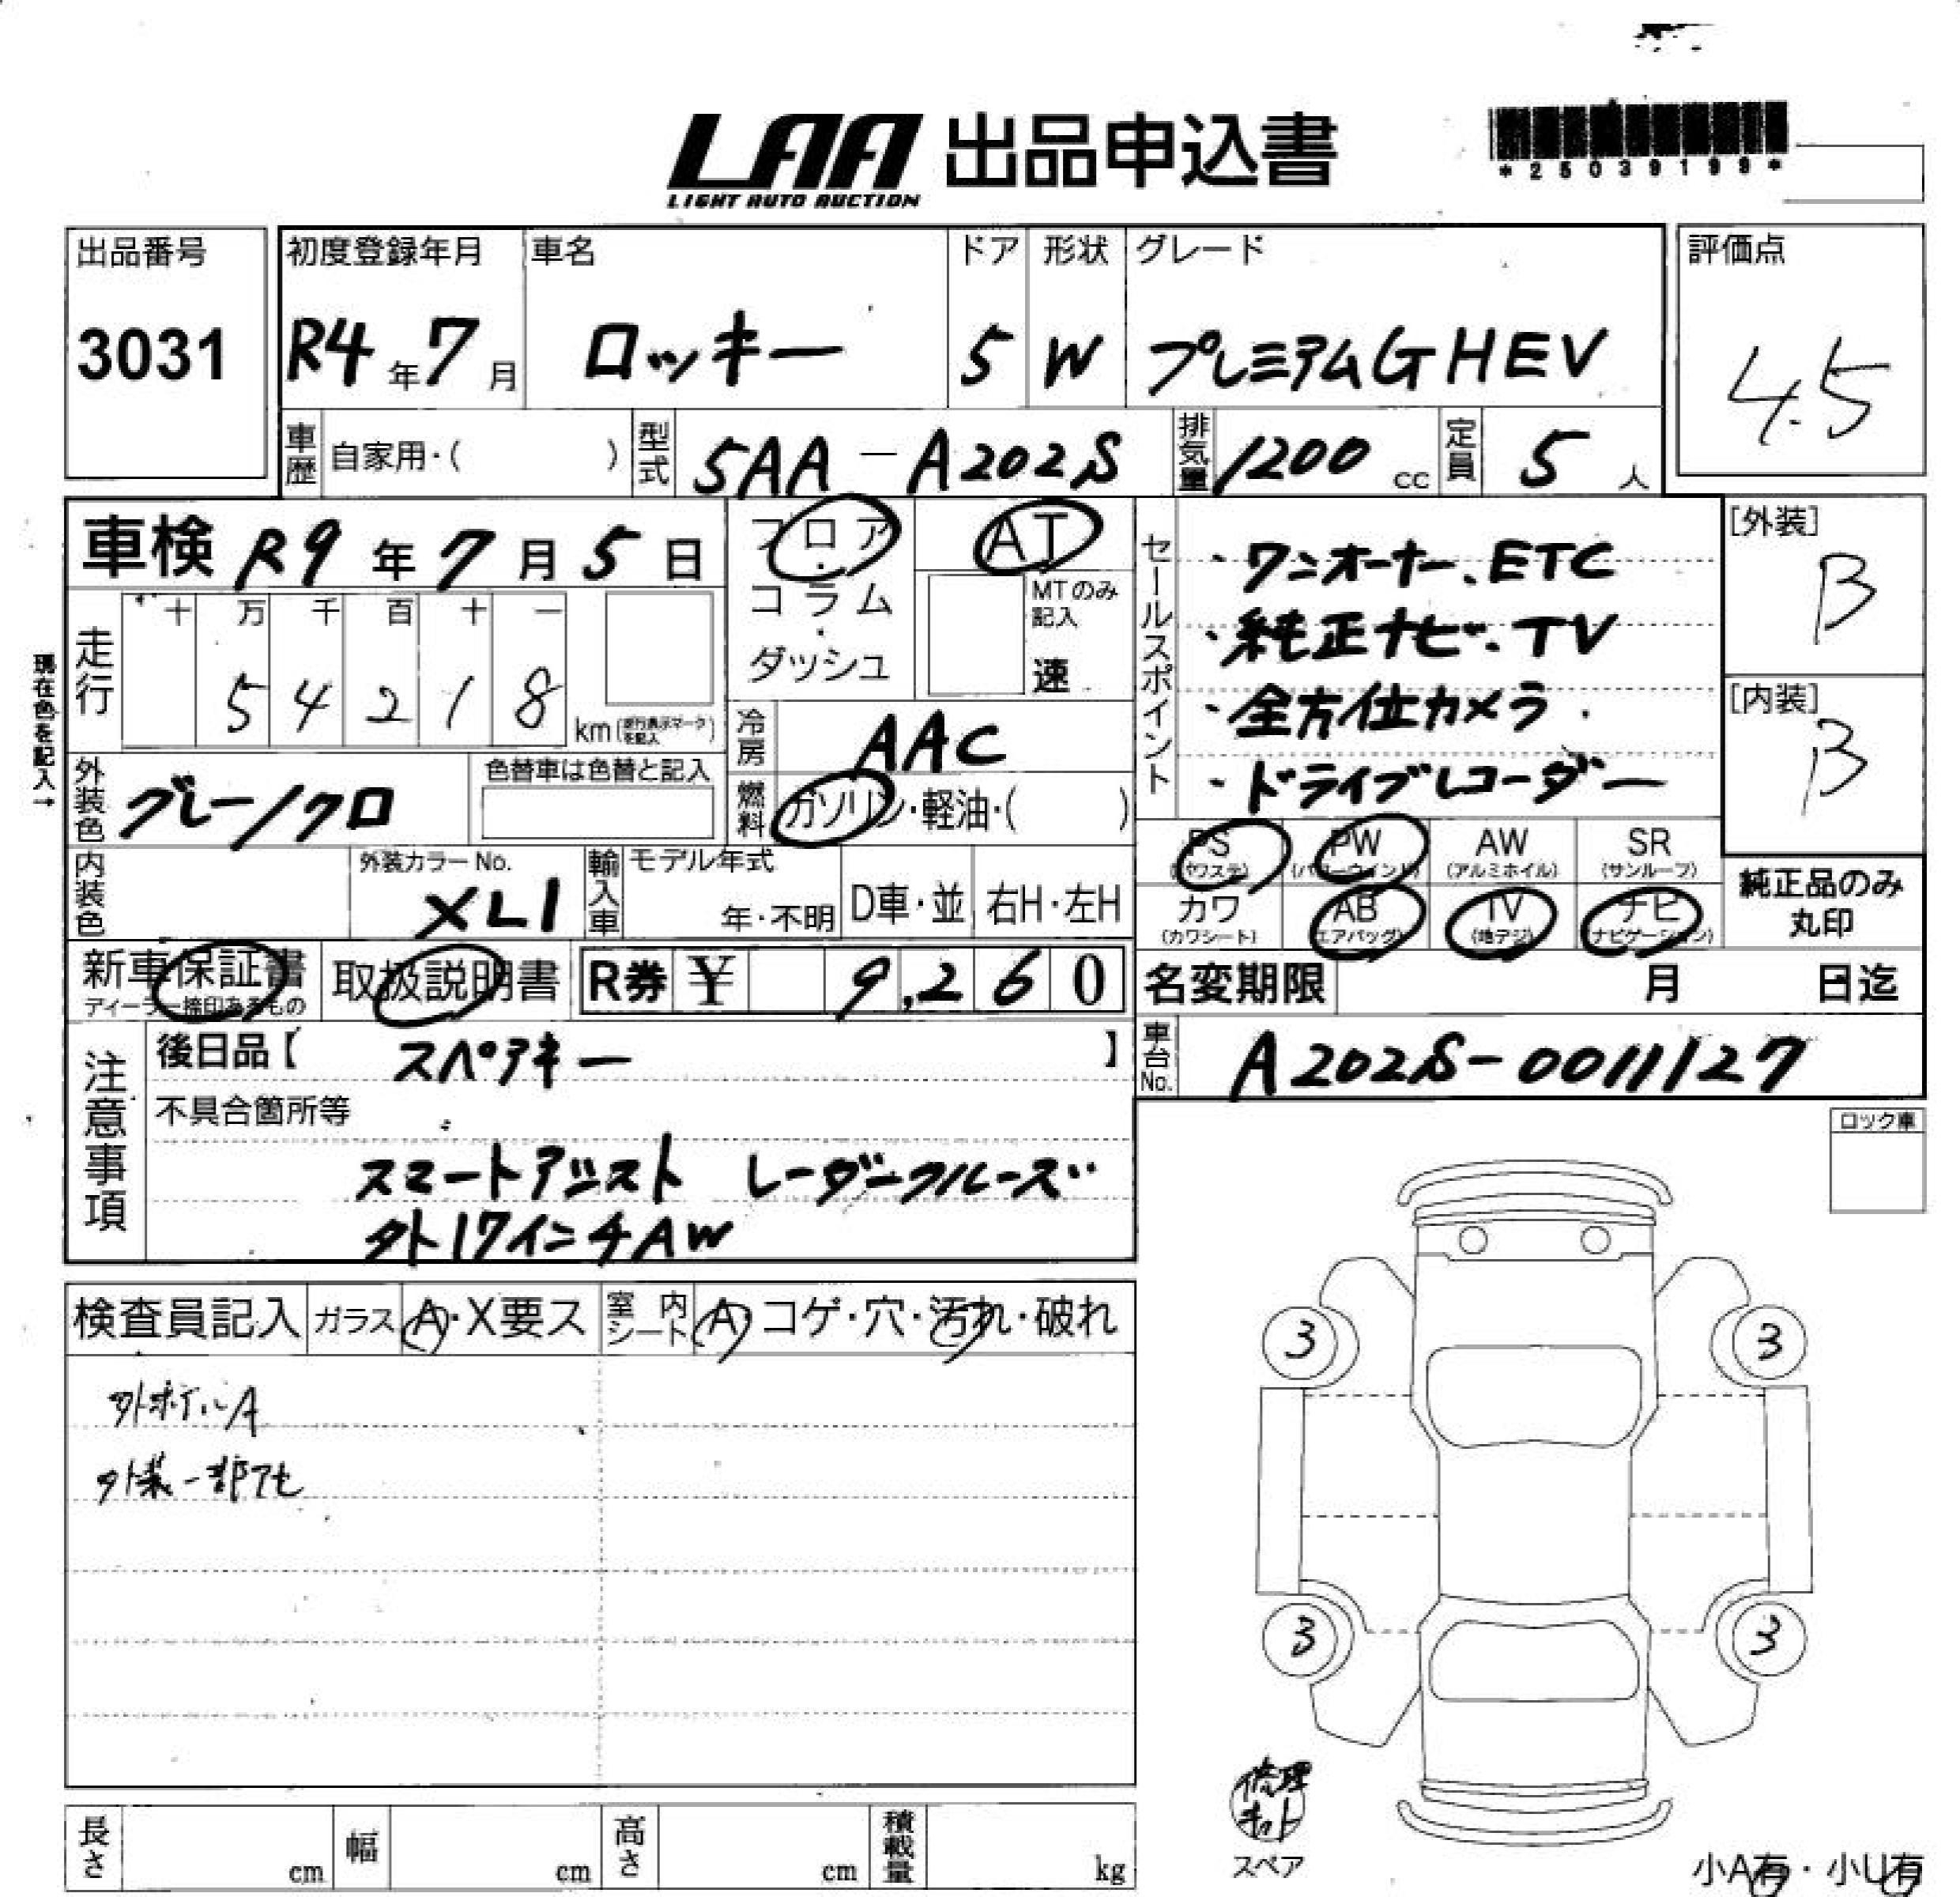 LAA 出品申込書
LIGHT AUTO AUCTION
*25039199*
出品番号
3031
初度登録年月
R4年7月
車名
ロッキー
ドア
5
形状
W
グレード
プレミアムG HEV
評価点
4.5
車歴 自家用・( )
型式 5AA-A202S
排気量 1200 cc
定員 5 人
車検 R9年7月5日
フロア・コラム・ダッシュ
AT
MTのみ記入
速
セールスポイント
・ワンオーナー、ETC
・純正ナビ・TV
・全方位カメラ
・ドライブレコーダー
[外装]
B
[内装]
B
現在色を記入→
走行
十 万 千 百 十 一
5 4 2 1 8
km
冷房 AAC
燃料 ガソリン・軽油・( )
外装色 グレー/クロ
色替車は色替と記入
内装色
外装カラーNo.
XL1
輸入車
モデル年式
年・不明
D車・並
右H・左H
PS (パワステ)
PW (パワーウインド)
AW (アルミホイル)
SR (サンルーフ)
カワ (カワシート)
AB (エアバッグ)
TV (地デジ)
ナビ (ナビゲーション)
純正品のみ
丸印
新車保証書
ディーラー捺印あるもの
取扱説明書
R券 ¥ 9,260
名変期限 月 日迄
車台No. A202S-0011127
注意事項
後日品【 スペアキー 】
不具合箇所等
スマートアシスト レーダークルーズ
外17インチAW
ロック車
検査員記入
ガラス A・X要ス
室内シート A・コゲ・穴・汚れ・破れ
外ホイルA
外装一部アセ
3
3
3
3
修理キット
スペア
小A有・小U有
長さ cm
幅 cm
高さ cm
積載量 kg